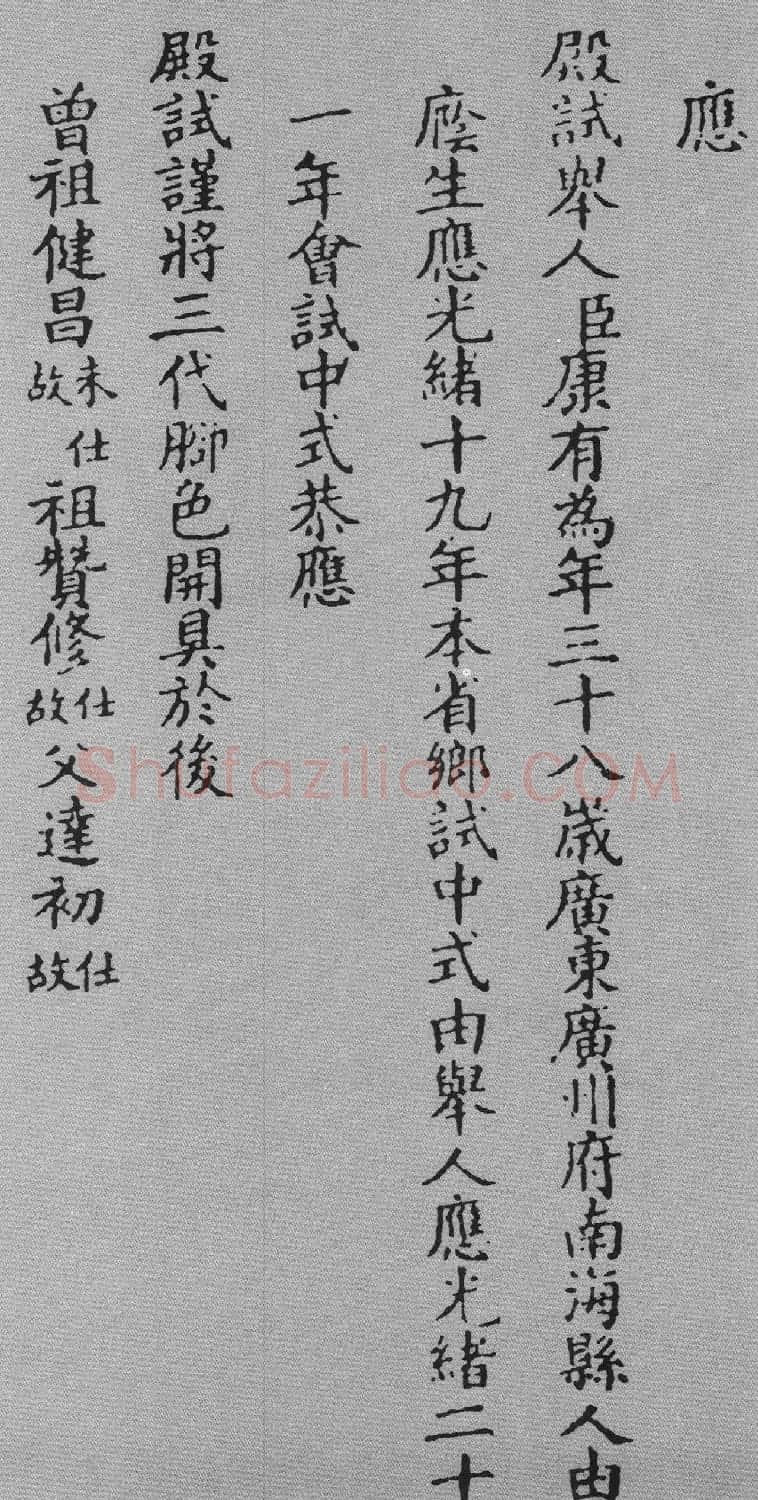 應
殿試舉人臣康有為年三十八歲廣東廣州府南海縣人由
廕生應光緒十九年本省鄉試中式由舉人應光緒二十
一年會試中式恭應
殿試謹將三代腳色開具於後
曾祖健昌未仕故祖贊修仕故父達初仕故
Shufaziliao.COM